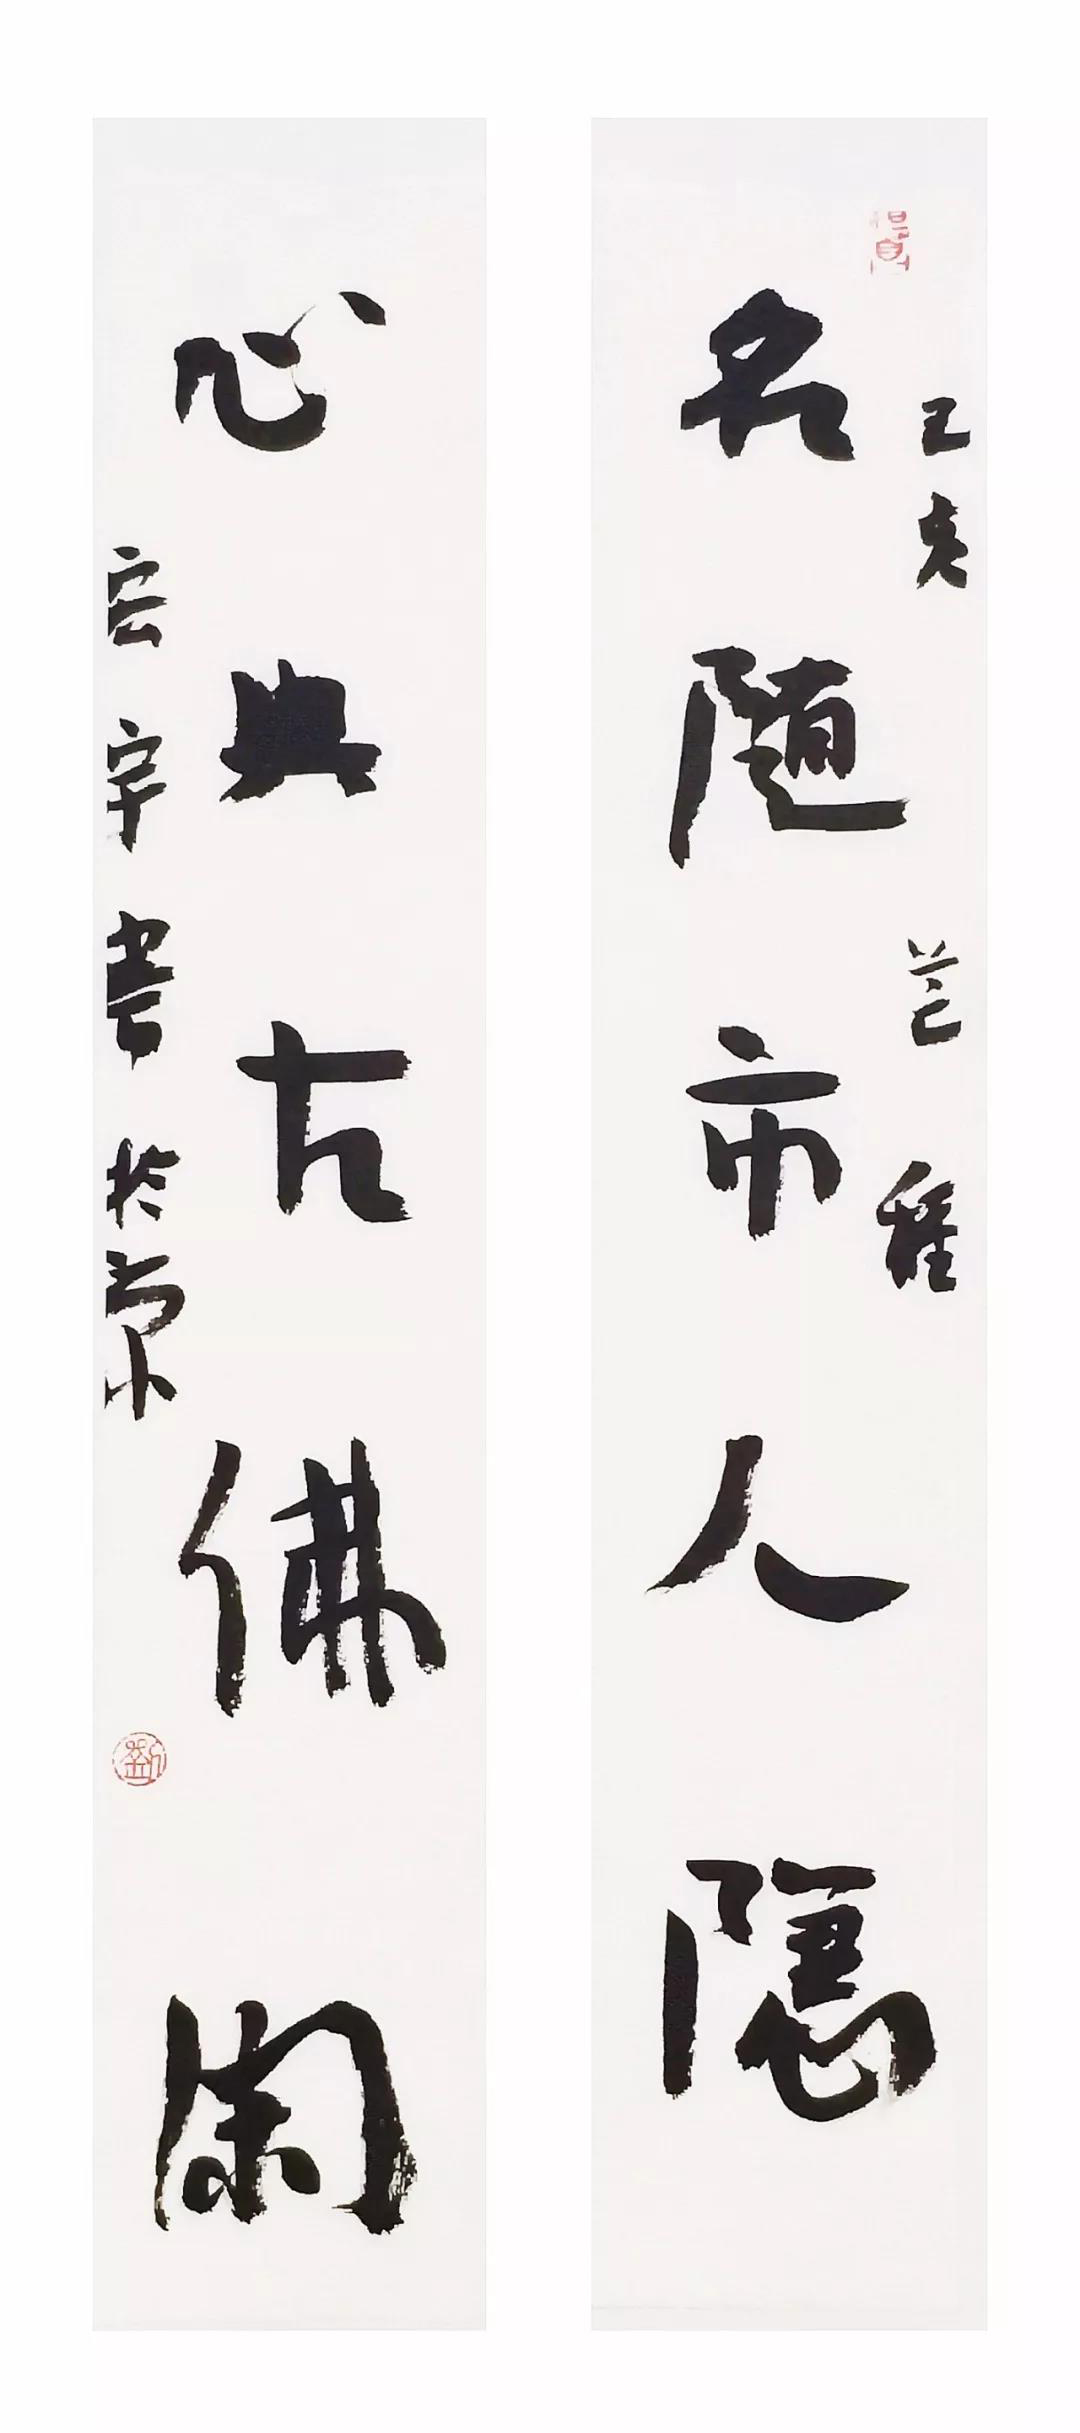 己亥 芒種
名随市人隱
心與古佛閑
宏宇書於京
劉